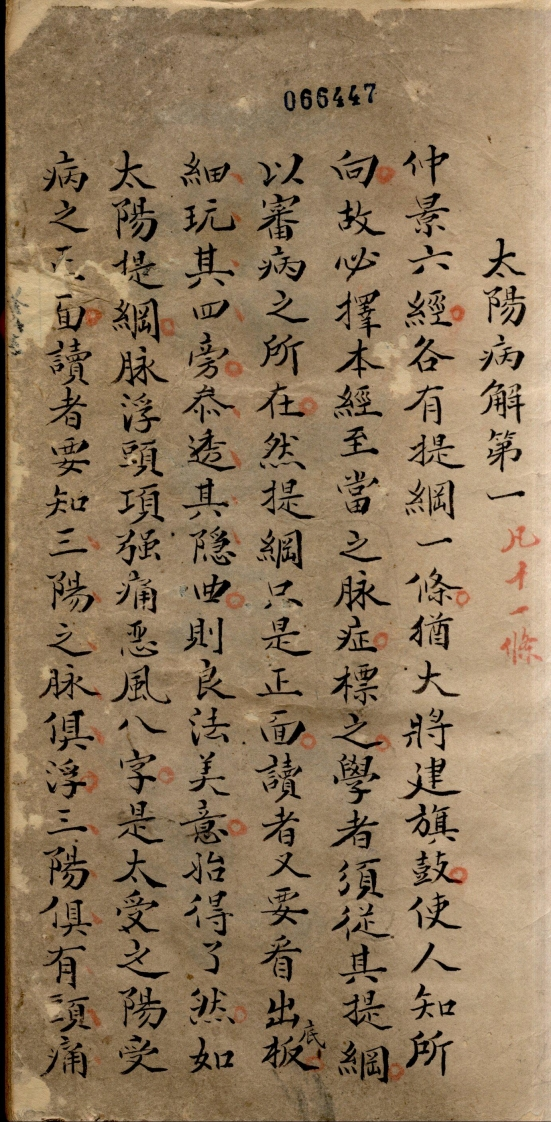 066447
太陽病解第一 凡十一條
仲景六經各有提綱一條猶大將建旗鼓使人知所
向故必擇本經至當之脉症標之學者須從其提綱
以審病之所在然提綱只是正面讀者又要看出板底
細玩其四旁叅透其隱曲則良法美意始得了然如
太陽提綱脉浮頭項強痛惡風八字是太受之陽受
病之正面讀者要知三陽之脉俱浮三陽俱有頭痛